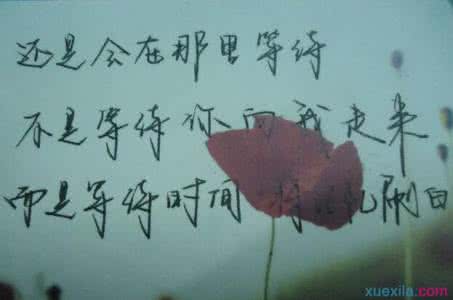 还是会在那里等待
不是等待你向我走来
而是等待时间 将 刷白
xuexila.com